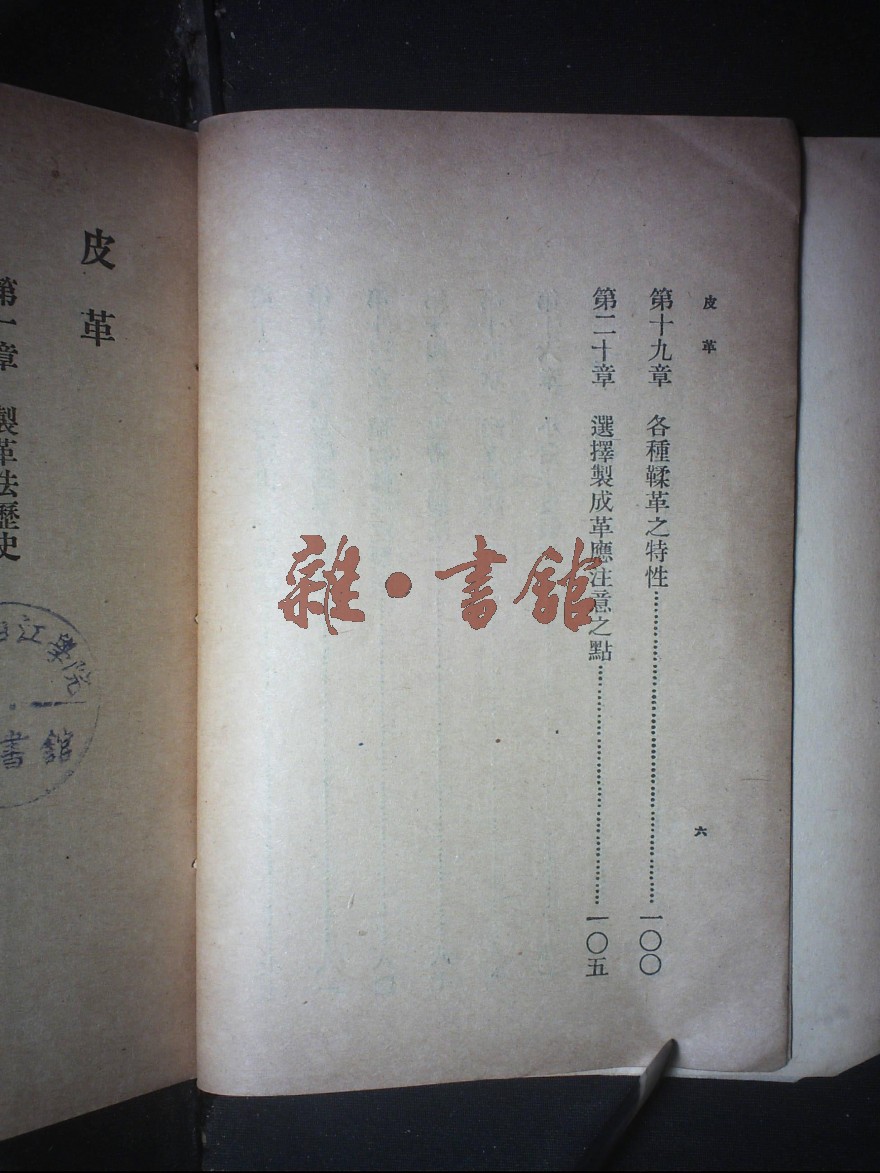 皮革
六
第十九章 各種鞣革之特性……一〇〇
第二十章 選擇製成革應注意之點……一〇五
雜·書館
皮革
第一章 製革法歷史
江學院
書館